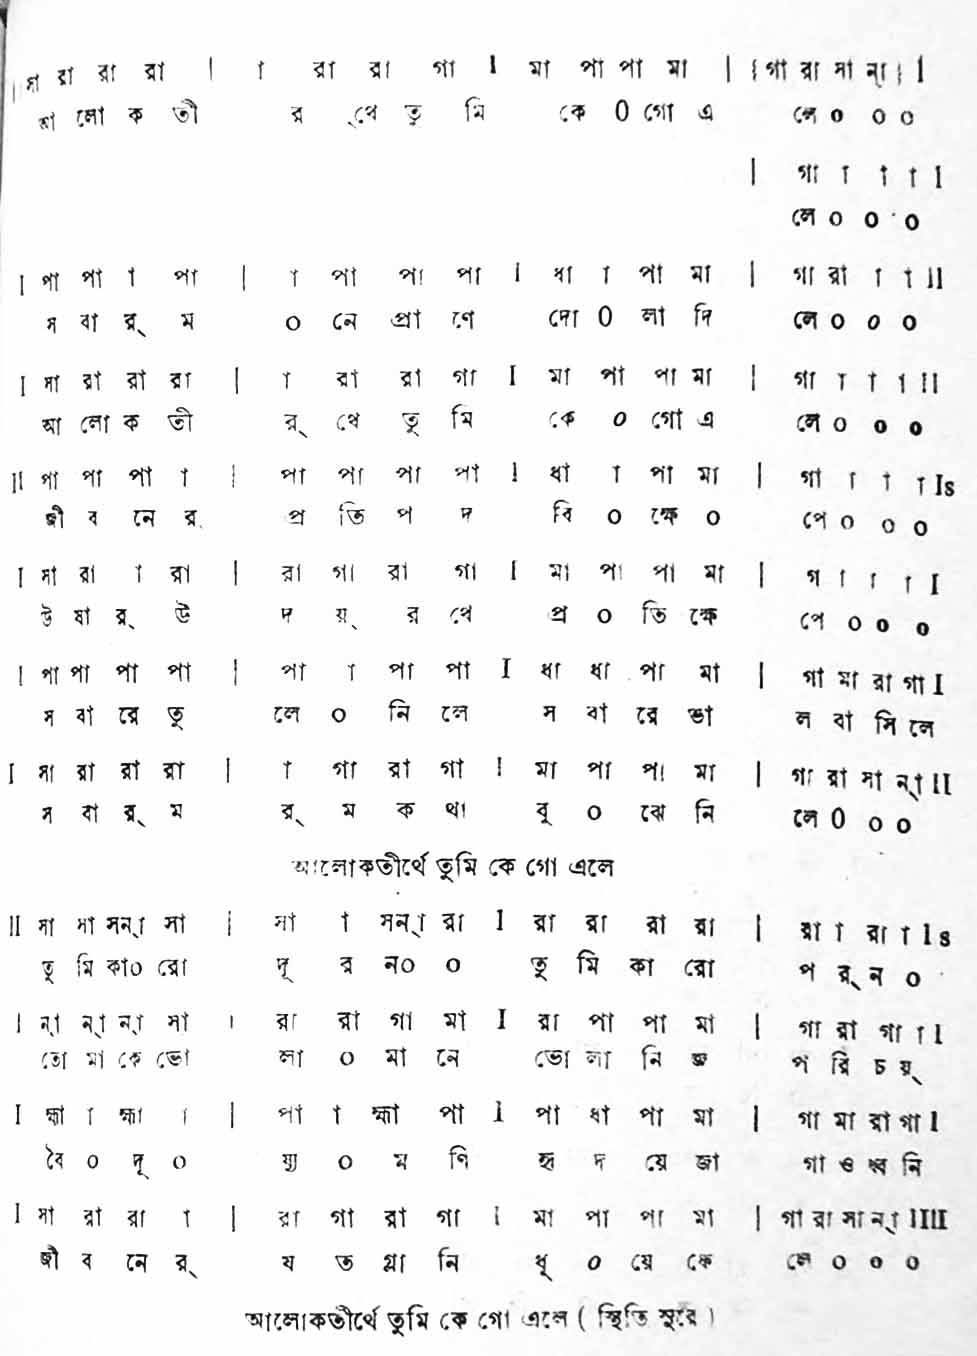 | সা রা রা রা | া রা রা গা I মা পা পা মা | {গা রা সা ন্া} I
আ লো ক তী র ্থে তু মি কে 0 গো এ লে ০ ০ ০
| গা া া া I
লে ০ ০ ০
I পা পা া পা | া পা পা পা I ধা া পা মা | গা রা া া II
স বা র্ ম ০ নে প্রা ণে দো 0 লা দি লে ০ ০ ০
I সা রা রা রা | া রা রা গা I মা পা পা মা | গা া া া II
আ লো ক তী র্ থে তু মি কে ০ গো এ লে ০ ০ ০
II পা পা পা া | পা পা পা পা I ধা া পা মা | গা া া া Is
জী ব নে র্ প্র তি প দ বি ০ ক্ষে ০ পে ০ ০ ০
I সা রা া রা | রা গা রা গা I মা পা পা মা | গ া া া I
উ ষা র্ উ দ য়্ র থে প্র ০ তি ক্ষে পে ০ ০ ০
| পা পা পা পা | পা া পা পা I ধা ধা পা মা | গা মা রা গা I
স বা রে তু লে ০ নি লে স বা রে ভা ল বা সি লে
I সা রা রা রা | া গা রা গা I মা পা পা মা | গা রা সা ন্া II
স বা র্ ম র্ ম ক থা বু ০ ঝে নি লে 0 ০ ০
আলোকতীর্থে তুমি কে গো এলে
II সা সা সন্া সা | সা া সন্া রা I রা রা রা রা | রা া রা া I s
তু মি কা০ রো দূ র ন০ ০ তু মি কা রো প র্ ন ০
I ন্া ন্া ন্া সা । রা রা গা মা I রা পা পা মা | গা রা গা া I
তো মা কে ভো লা ০ মা নে ভো লা নি জ প রি চ য়্
I হ্মা া হ্মা া | পা া হ্মা পা I পা ধা পা মা | গা মা রা গা I
বৈ ০ দূ ০ র্য্য ০ ম ণি হৃ দ য়ে জা গা ও ধ্ব নি
I সা রা রা া | রা গা রা গা I মা পা পা মা | গা রা সা ন্া IIII
জী ব নে র্ য ত গ্লা নি ধূ ০ য়ে ফে লে ০ ০ ০
আলোকতীর্থে তুমি কে গো এলে ( স্থিতি সুরে )